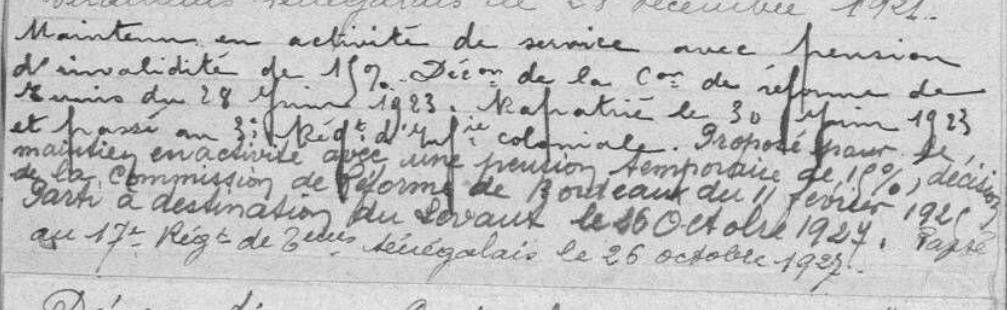 Tirailleurs Sénégalais le 23 décembre 1921.
Maintenu en activité de service avec pension
d'invalidité de 15%. Décon de la Con de réforme de
Tunis du 28 Juin 1923. Rapatrié le 30 Juin 1923
et passé au 3e Régt d'Infie coloniale. Proposé pour le
maintien en activité avec une pension temporaire de 15%, décision
de la Commission de Réforme de Bordeaux du 11 février 192
Parti à destination du Levant le 26 Octobre 1927. Passé
au 17e Régt de Teurs sénégalais le 26 octobre 1927.